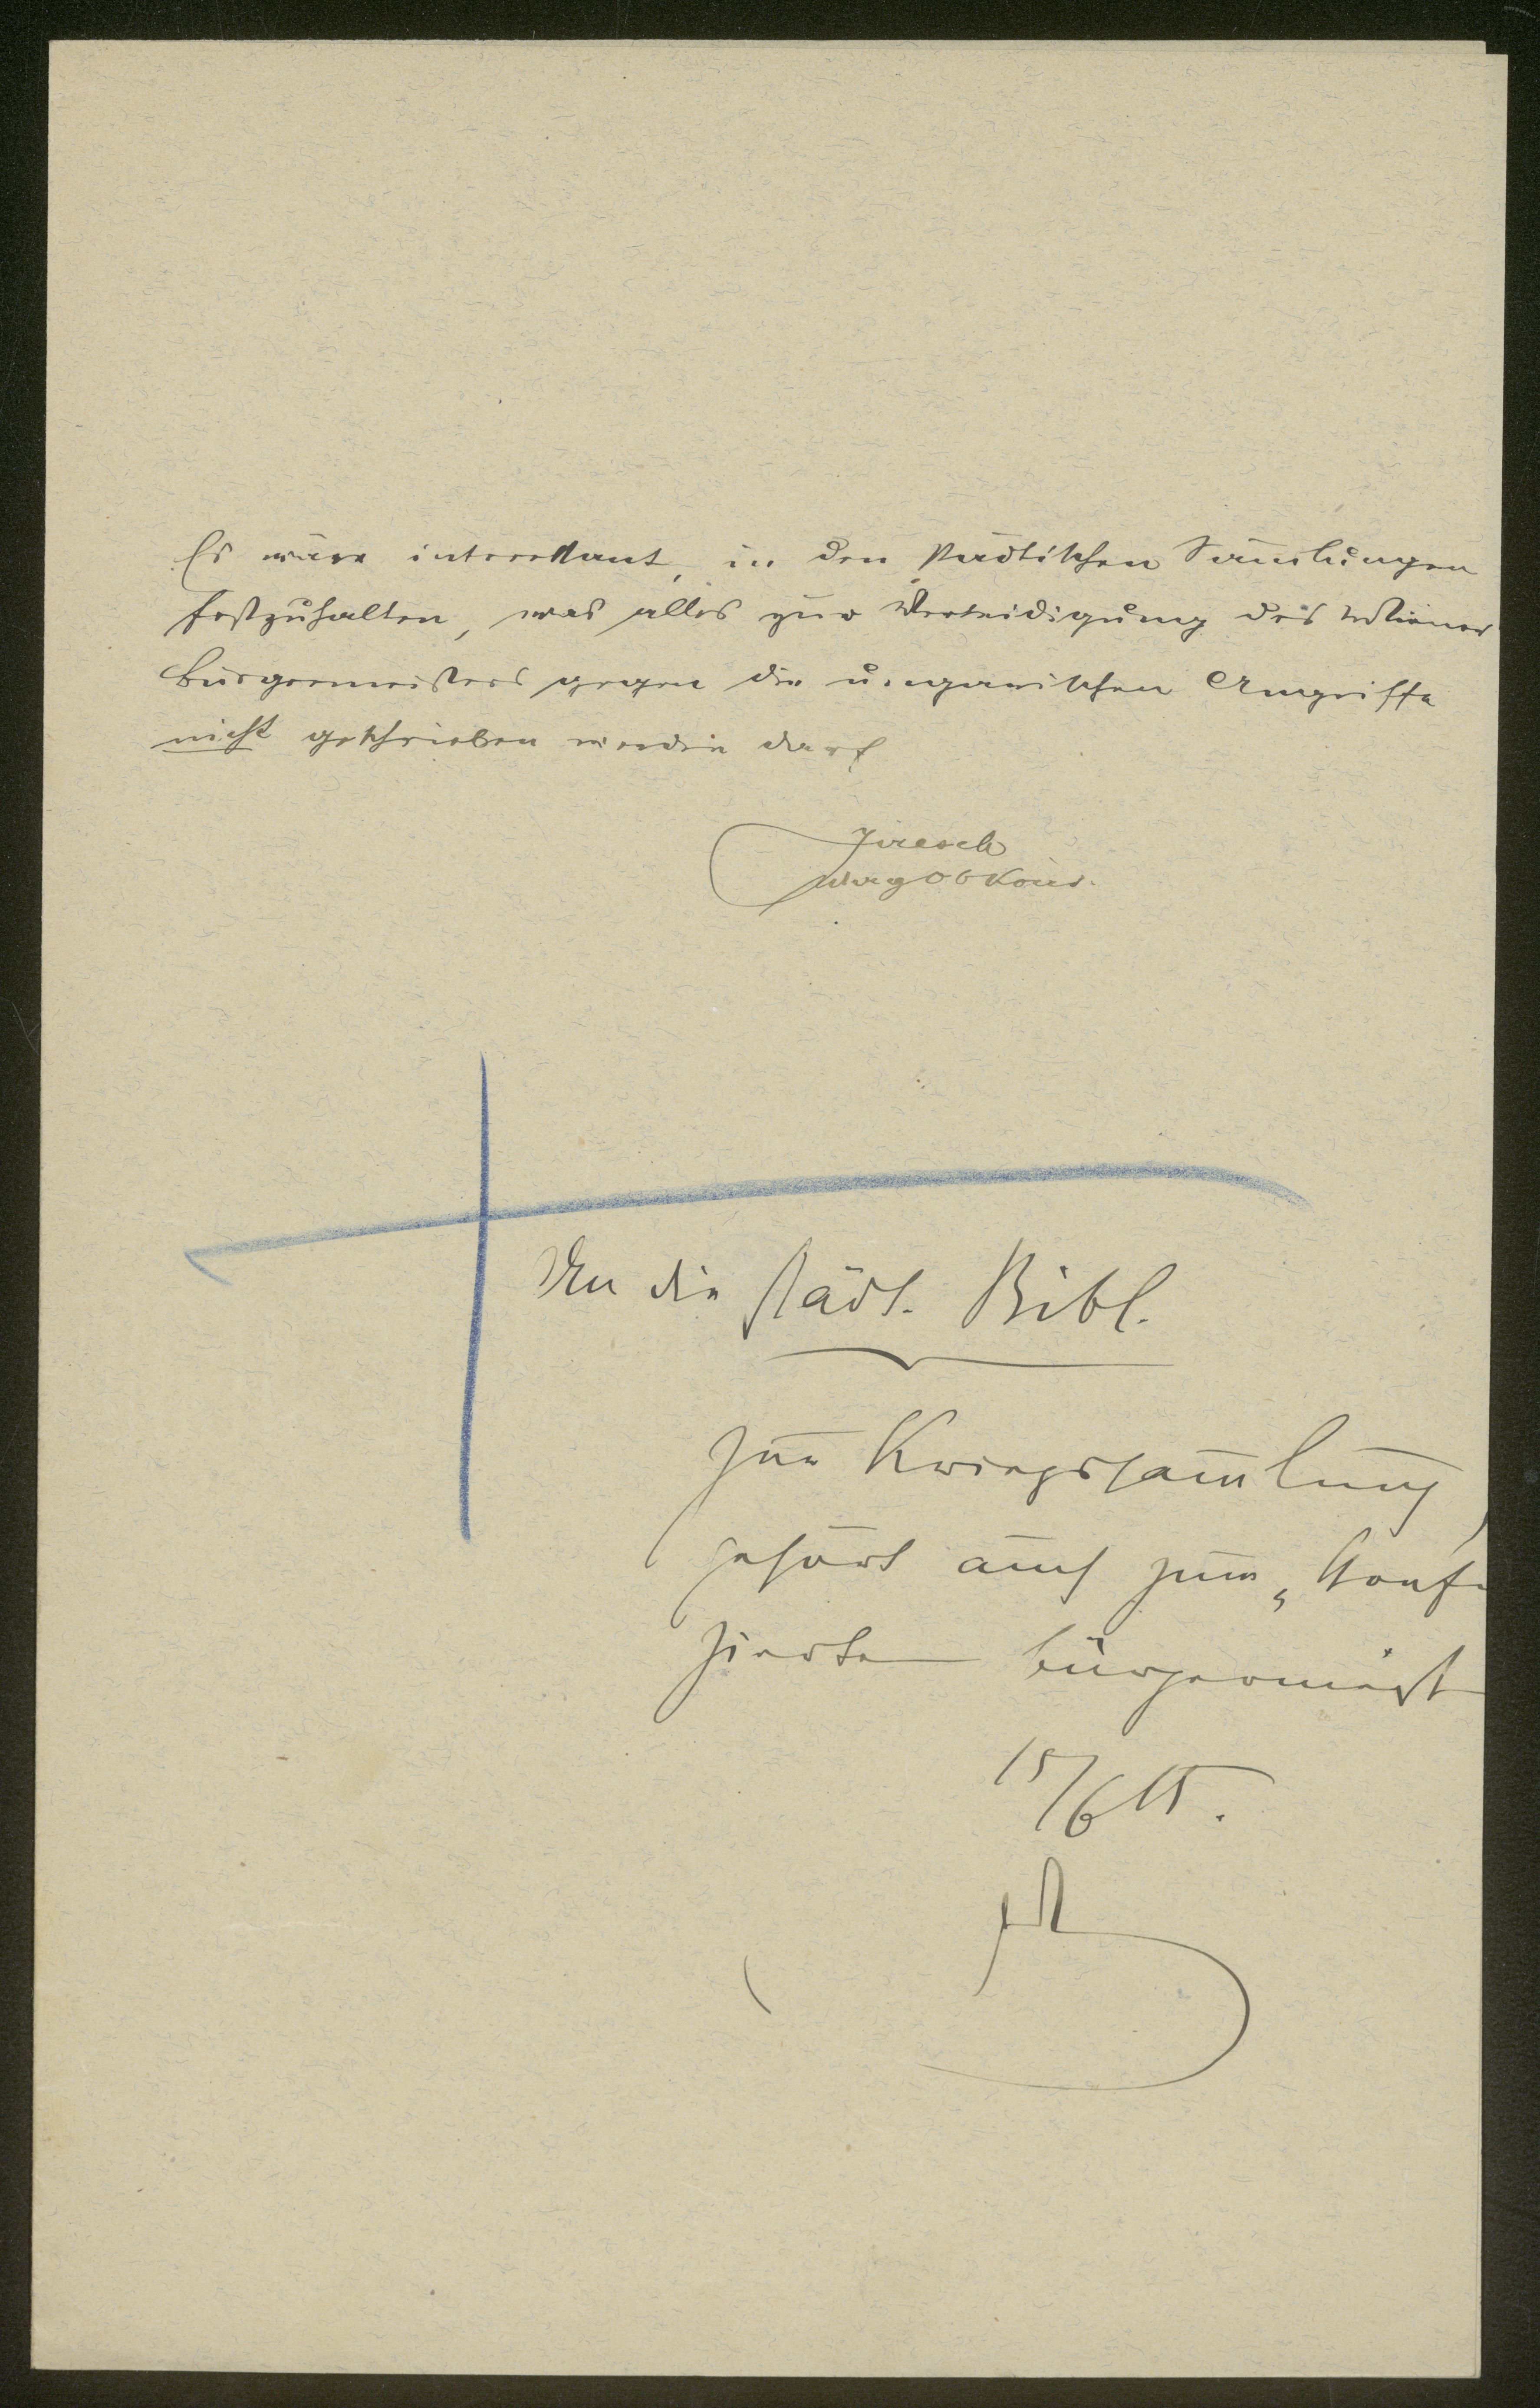 Es wäre interessant, in den städtischen Sam̅lungen
festzuhalten, was alles zur Verteidigung des Wiener
Bürgermeisters gegen die ungarischen Angriffe
nicht geschrieben werden darf
Jiresch
MagObKoär.
An die städt. Bibl.
zur Kriegssam̅lung,
gehört auch zum „Konfis
zierten Bürgermeist
15/6 15.